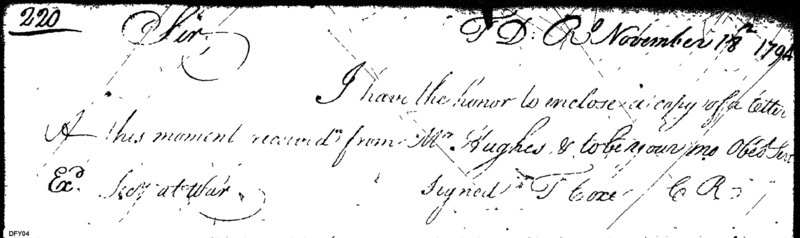 220 Sir T D. R.o November 18th 1794
I have the honor to inclose a copy of a letter
A this moment received from Mr Hughes & to be your mo Obed Serv
Exd. Secy at War Signed T Coxe C R
DFY04